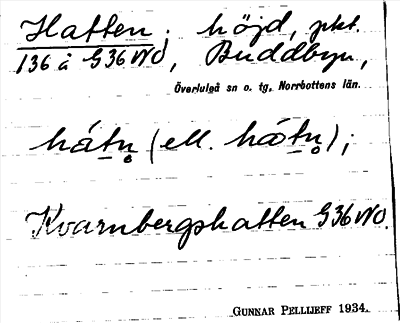 Hatten; höjd, pkt.
136 å G36NO, Buddbyn,
Överluleå sn o. tg, Norrbottens län.
hátn̥ (ell. hátn̥);
Kvarnbergshatten G36NO.
GUNNAR PELLIJEFF 1934.